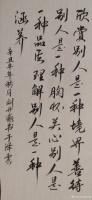 欣赏别人是一种境界善待
别人是一种胸怀关心别人是
一种品质理解别人是一种
涵养